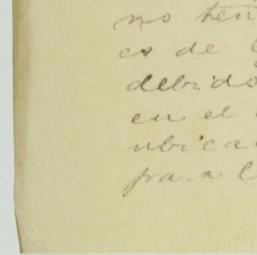 no ten
es de
debido
en el
ubica
para l